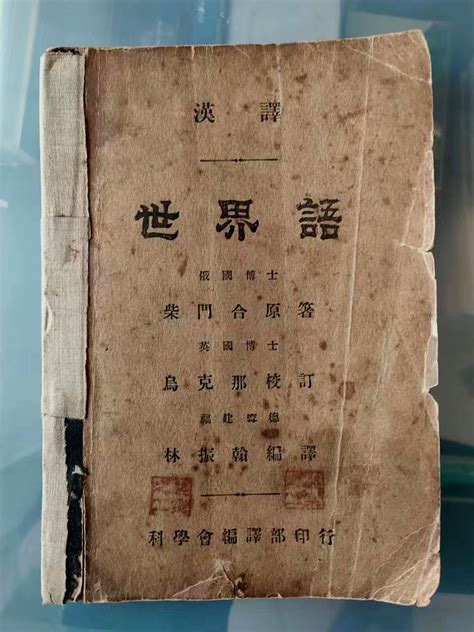 漢譯
世界語
俄國博士
柴門合原箸
英國博士
烏克那校訂
福建寧德
林振翰編譯
科學會編譯部印行